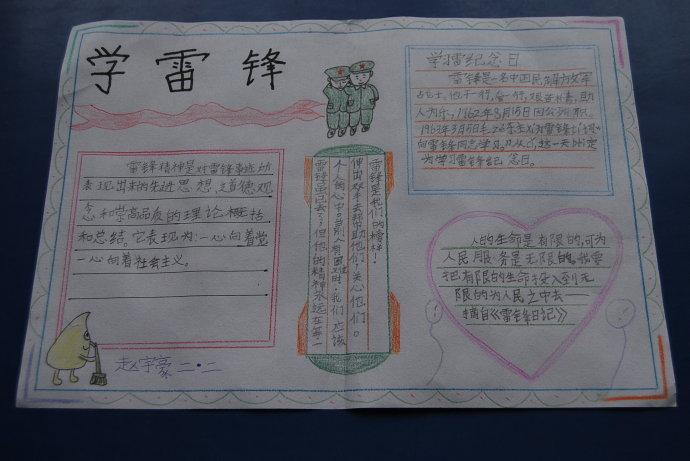 学雷锋
雷锋精神是对雷锋事迹所
表现出来的先进思想、道德观
念和崇高品质的理论概括
和总结。它表现为:一心向着党
一心向着社会主义。
赵宇豪 二·二
雷锋是我们的榜样!
伸出双手去帮助他们,关心他们。
个人的心中。当别人有困难时,我们应该
雷锋虽已去了,但他的精神永远在每一
学雷纪念日
雷锋是一名中国民解放军
占士,他干一行,
人为乐,1962年8月15日因公殉职。
1963年3月5日毛
向雷锋同志学习
为学习雷锋纪念日。
人的生命是有限的,可为
人民服务是无限的,我要
把有限的生命投入到无
限的为人民之中去——
摘自《雷锋日记》